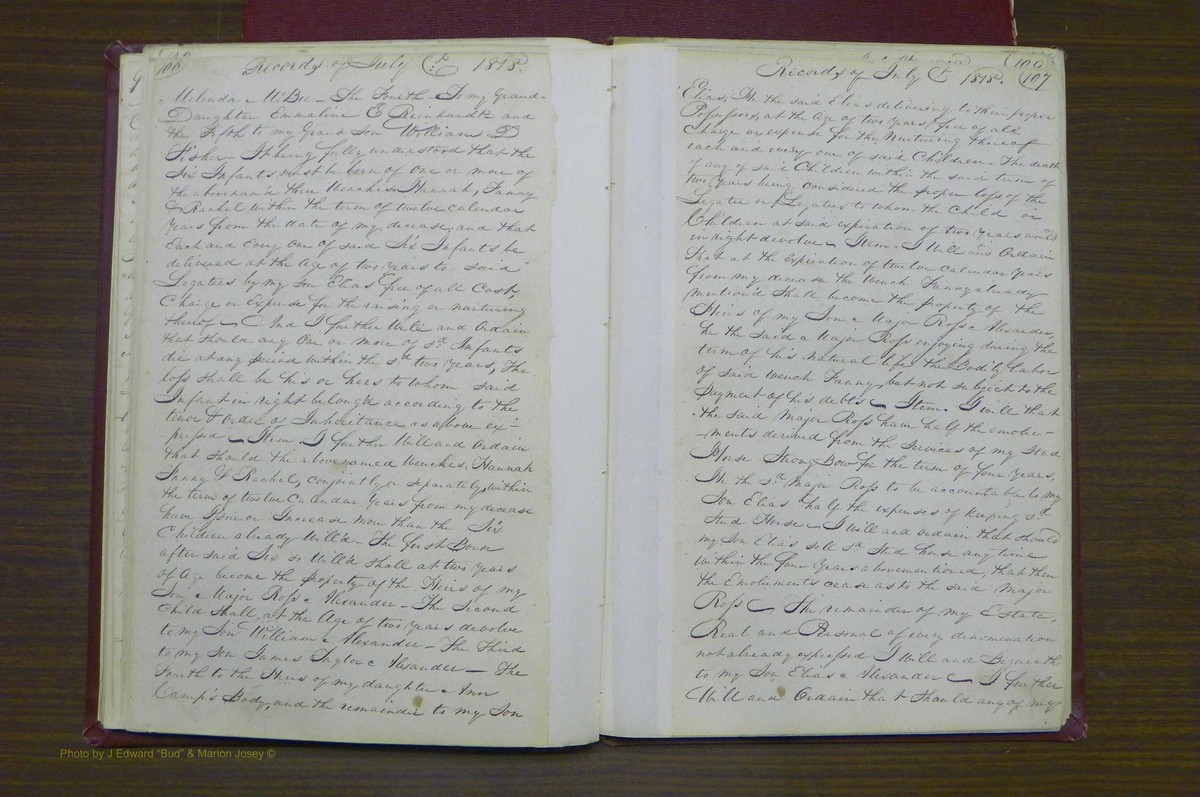 106 Records of July Ct 1818.
Melinda McBee — The Fourth — To my Grand-
Daughter Emmaline E Reinhardt and
the Fifth to my Grand Son William D
Fisher — It being fully understood that the
Six Infants must be born of one or more of
the abovenam'd three Wenches, Hannah, Fanny
& Rachel within the term of twelve calendar
years from the date of my decease, and that
Each and Every one of said Six Infants be
delivered at the Age of two years to said
Legatees by my Son Elias free of all Cash,
Charge or Expense for the raising or nurturing
thereof — And I further Will and Ordain
that should any one or more of sd. Infants
die at any period within the sd. two years, The
loss shall be his or hers to whom said
Infant in right belong'd according to the
tenor & order of Inheritance as above ex-
-pressed — Item. I further Will and Ordain
that should the above named Wenches, Hannah
Fanny & Rachel, conjointly or separately, within
the term of twelve Calendar Years from my decease
have Issue or Increase more than the Six
Children already Will'd — The first Born
after said Six so Will'd shall at two years
of Age become the property of the Heirs of my
Son Major Ross Alexander — The Second
Child shall, at the Age of two years devolve
to my Son William Alexander — The Third
to my Son James Taylor Alexander — The
Fourth to the Heirs of my daughter Ann
Camp's Body, and the remainder to my Son
Records of July Ct 1818. 107
Elias, He the said Elias delivering to their proper
Possessors, at the Age of two years, free of all
Charge or expense for the Nurturing thereof
each and every one of said Children — The death
of any of said Children within the said term of
two years being considered the proper loss of the
Legatee or Legatees to whom the Child or
Children at said expiration of two years would
in right devolve — Item. I Will and Ordain
that at the expiration of twelve calendar years
from my decease the Wench Fanny already
mention'd shall become the property of the
Heirs of my Son Major Ross Alexander,
he the said Major Ross enjoying during the
term of his Natural life the Bodily labor
of said wench Fanny, but not subject to the
payment of his debts — Item. I will that
the said Major Ross have half the emolu-
-ments derived from the Services of my Stud
Horse Strong Bow for the term of four years,
He the sd. Major Ross to be accountable to my
Son Elias half the expenses of keeping sd
Stud Horse — I will and ordain that should
my Son Elias sell sd. Stud horse any time
within the four Years abovementioned, that then
the Emoluments cease as to the said Major
Ross — The remainder of my Estate,
Real and Personal of every denomination
not already expressed I Will and Bequeath
to my Son Elias Alexander — I further
Will and Ordain that should any of my
Photo by J Edward "Bud" & Marion Josey ©